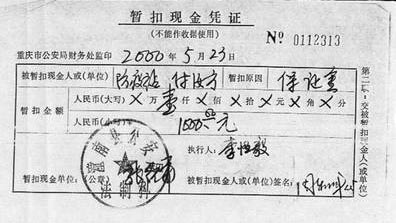 暂扣现金凭证
(不能作收据使用)
Nº 0112313
重庆市公安局财务处监印 2000年5月23日
被暂扣现金人或(单位) 防疫站 暂扣原因 保证金
暂扣金额 人民币(大写)×万壹仟×佰×拾×元×角×分
人民币(小写)¥ 1000.00元
执行人:李恒毅
暂扣现金单位:(公章) 被暂扣现金人或(单位)签名:
县公安
法制科
第二联:交被暂扣现金人(或单位)